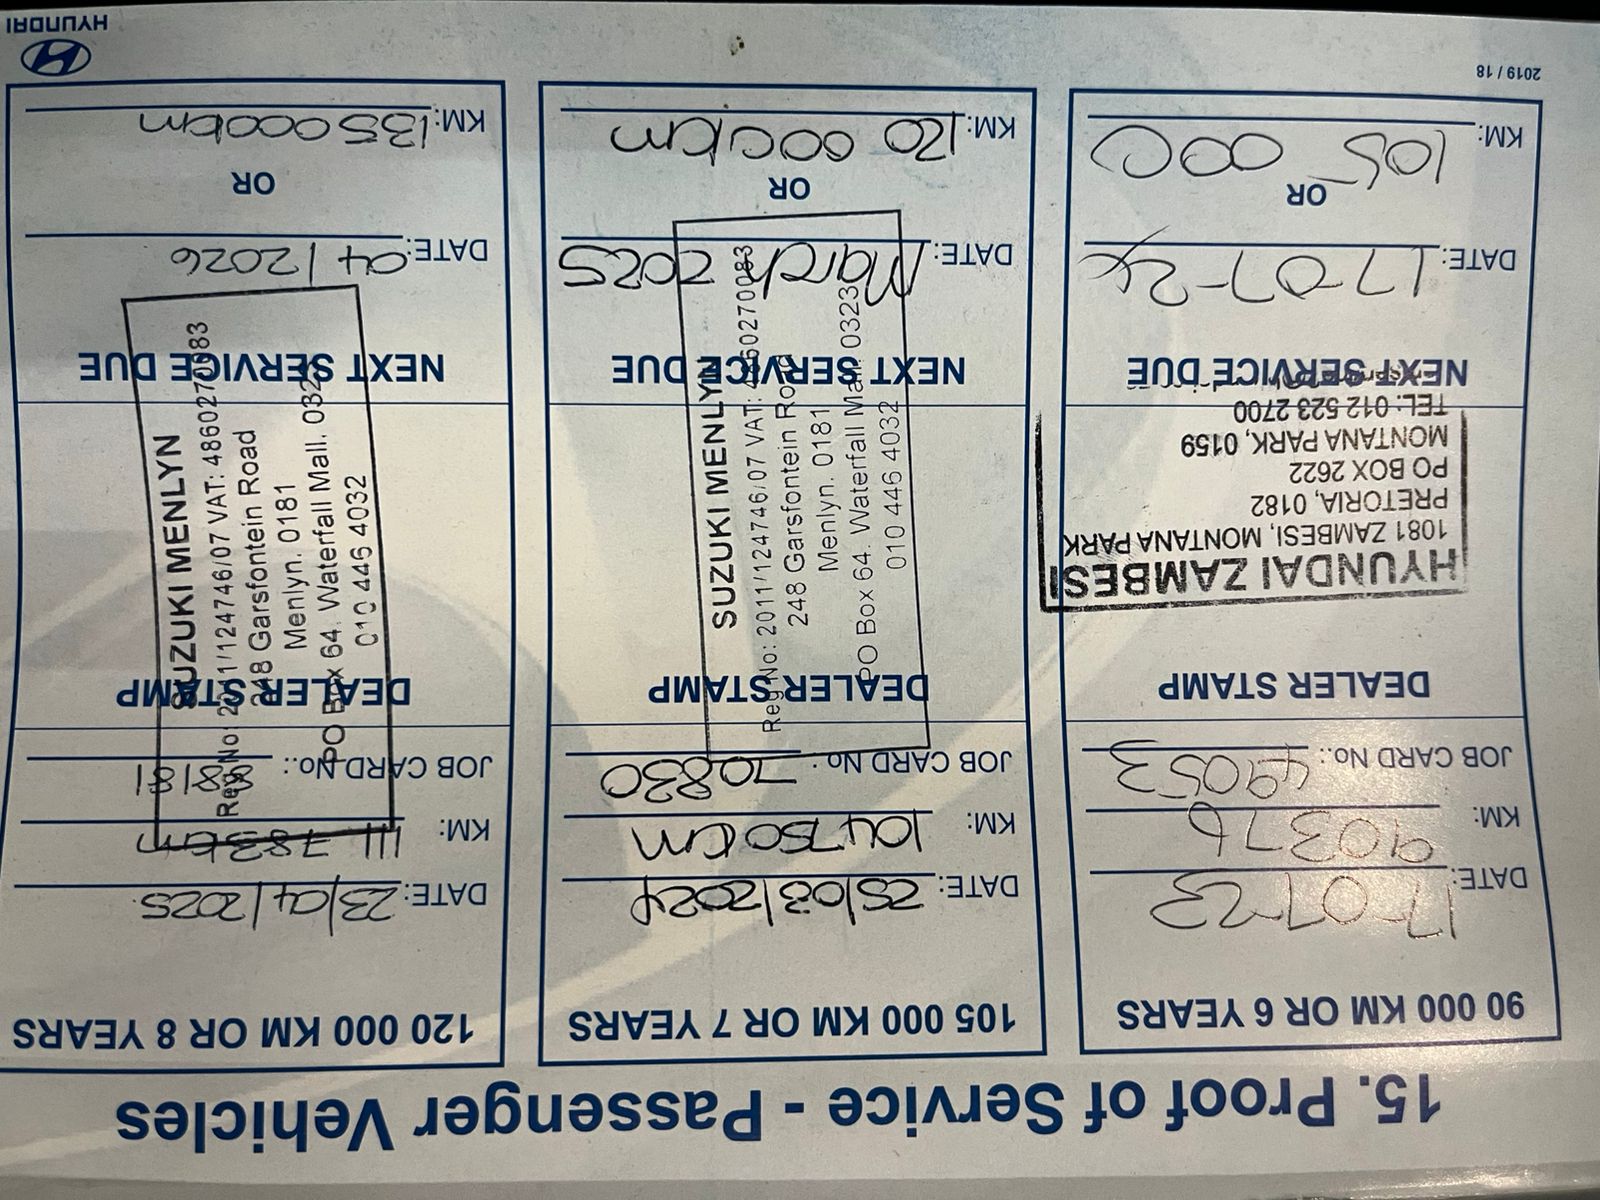 15. Proof of Service - Passenger Vehicles
90 000 KM OR 6 YEARS
DATE: 17-07-23
KM: 90376
JOB CARD No.: 49053
DEALER STAMP
HYUNDAI ZAMBESI
1081 ZAMBESI, MONTANA PARK
PRETORIA, 0182
PO BOX 2622
MONTANA PARK, 0159
TEL: 012 523 2700
NEXT SERVICE DUE
DATE: 17-07-24
OR
KM: 105 000
2019 / 18
105 000 KM OR 7 YEARS
DATE: 25/03/2024
KM: 104750km
JOB CARD No.: 70830
DEALER STAMP
SUZUKI MENLYN
Reg No: 2011/124746/07 VAT: 4860270083
248 Garsfontein Road
Menlyn. 0181
PO Box 64. Waterfall Mall. 0323
010 446 4032
NEXT SERVICE DUE
DATE: March 2025
OR
KM: 120 000km
120 000 KM OR 8 YEARS
DATE: 23/04/2025
KM: 111 783km
JOB CARD No.: 88181
DEALER STAMP
SUZUKI MENLYN
Reg No: 2011/124746/07 VAT: 4860270083
248 Garsfontein Road
Menlyn. 0181
PO Box 64. Waterfall Mall. 0323
010 446 4032
NEXT SERVICE DUE
DATE: 04/2026
OR
KM: 135 000km
HYUNDAI